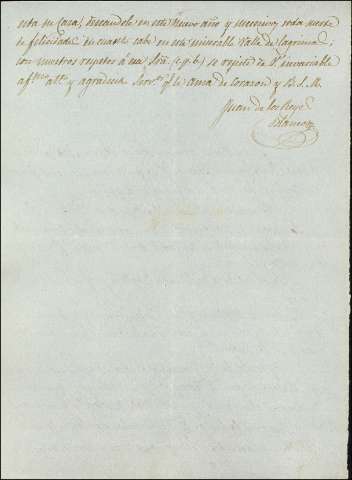 esta su Casa, deseandole en este Nuevo año y succesivos toda suerte
de felicidades en cuanto cabe en este miserable Valle de lagrimas,
con nuestros respetos a esa Sra. (c.p.b.) se repite de V. invariable
afmo. att. y agradecido Servr. q. le ama de corazon y B. S. M.
Juan de los Reyes
Blanco